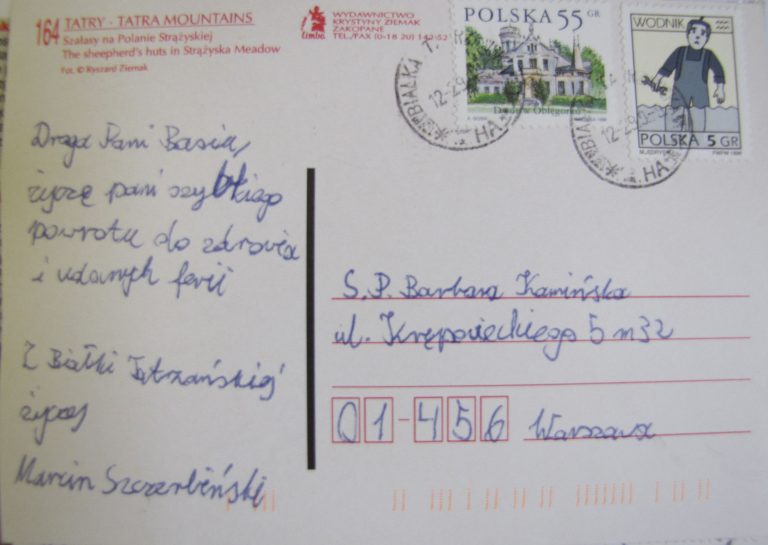 164 TATRY - TATRA MOUNTAINS
Szałasy na Polanie Strążyskiej
The sheepherd's huts in Strążyska Meadow
Fot. © Ryszard Ziemak
limba
WYDAWNICTWO
KRYSTYNY ZIEMAK
ZAKOPANE
TEL./FAX (0-18 20) 142-52
POLSKA 55 GR
Dwór w Oblęgorku
WODNIK
POLSKA 5 GR
BIAŁKA
12-29
HA
12-29
HA
Droga Pani Basia,
życzę pani szybkiego
powrotu do zdrowia
i udanych ferii
Z Białki Tatrzańskiej
życzy
Marcin Szczerbiński
S.P. Barbara Kamińska
ul. Krępowieckiego 5 m 32
01-456 Warszawa